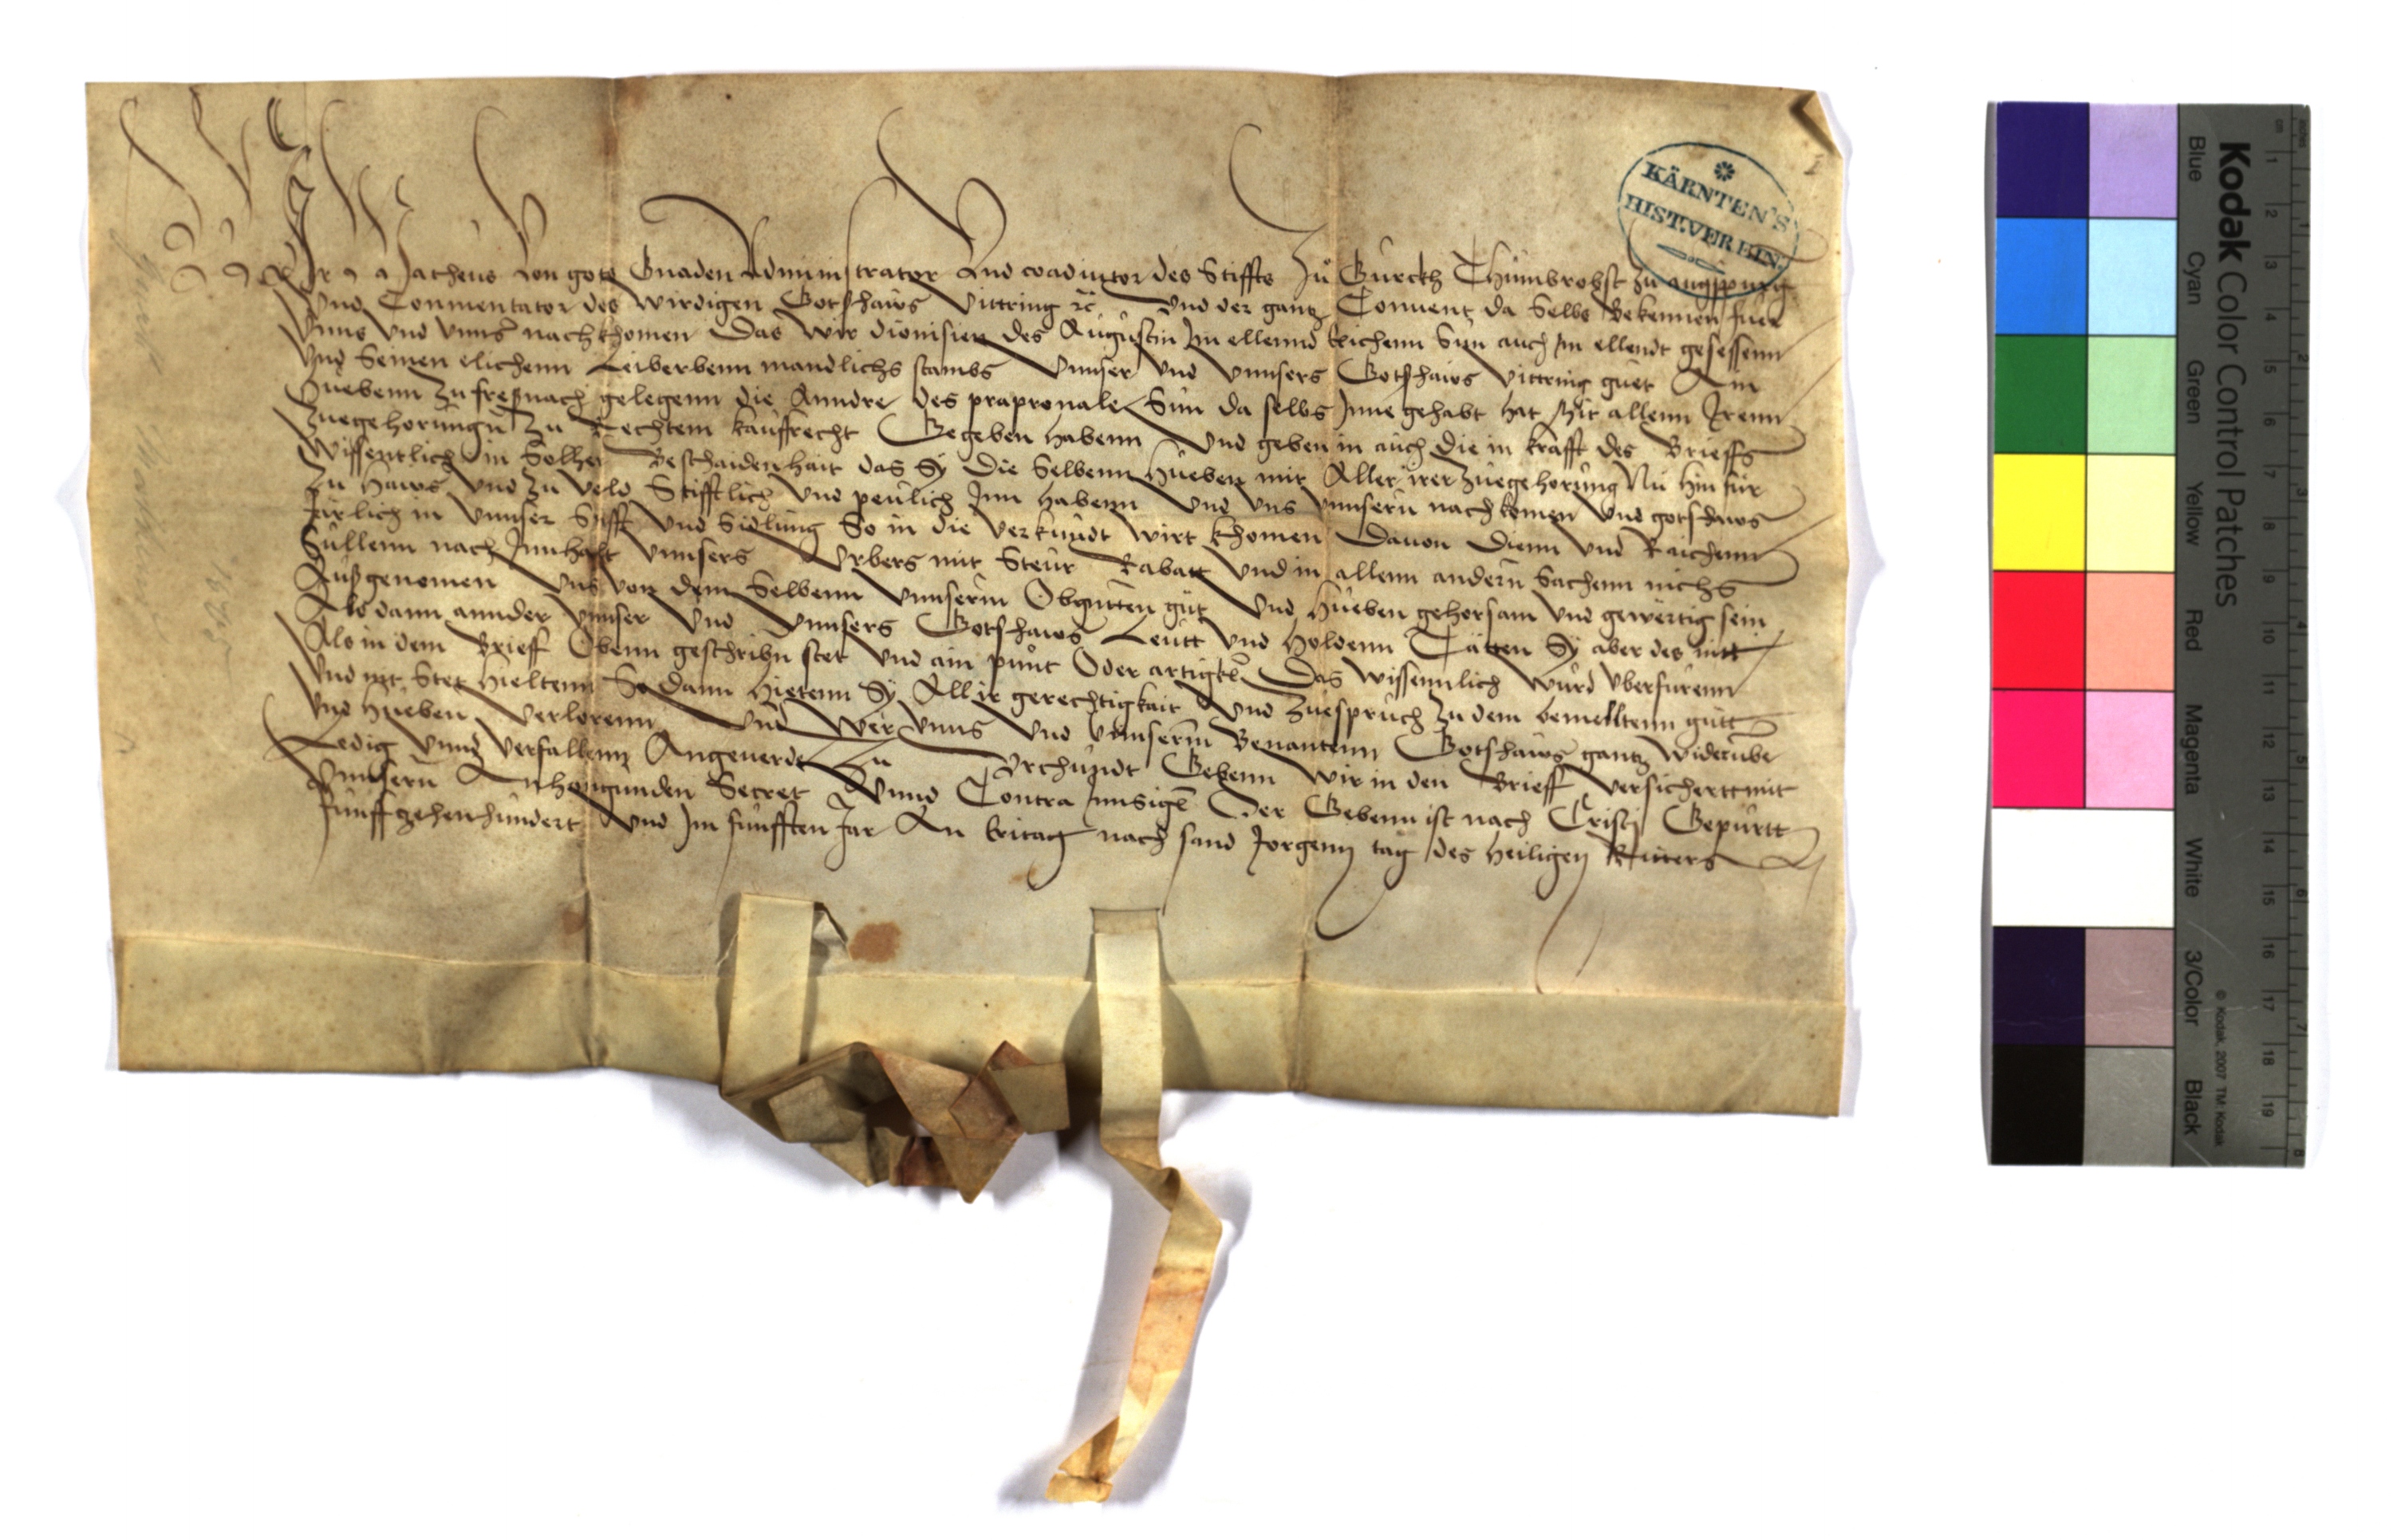 Wir Matheus von gots Gnaden Administrator Und coadiutor des Stiffts Zů Gurckh Thumbrobst zu augspurg
Und Commentator des wirdigen Gotshaws Vittring ꝛc Und der gantz Conuent da Selbs Bekennen fuer
Unns Und Unnser nachkhomen Das wir dionisien des Augustin Im ellennd Elichenn Sun auch im ellendt gesessenn
Und Seinen elichenn Leiberbenn mandlichs stambs Unnser Und Unnsers Gotshaws Vittring guet Am
Huebenn zu fresnach gelegenn die Anndre des prapronale Sun da selbs Inne gehabt hat Mit allenn Irenn
Zuegehorungn Zu Rechtem kauffrecht Gegeben habenn Und geben in auch die in krafft des Brieffs
Wissentlich in Solher Beschaidenhait das Sy Die Selbenn Hueben mit Aller irer zuegehorung Nu hin fur
Zu Haws Und Zu Veld Stifftlich Und peulich Inn habenn Und Uns Unnsern nachkomen Und gotshaws
Jarlich in Unnser Stifft Und Sidlung So in die Verkundt wirt khomen Dauon Dienn Und Raichenn
Sullenn nach Innhalt Unnsers Urbers mit Steur Rabatt Und in allenn andern Sachenn nichs
Außgenomen Uns Von dem Selbenn Unnserm Obgnten gut Und Hueben gehorsam Und gewertig sein
Als dann annder Unnser Und Unnsers Gotshaws Leutt Und Holdenn Tatten Sy aber des nitt
Als in dem Brieff Obenn geschribn stet Und ain punt Oder artigkl Das wissennlich wurd Uberfurenn
Und nit Stet Hieltenn So dann Hietenn Sy All ir gerechtigkait Und Zuespruch Zu dem bemelltenn gutt
Und Hueben Verlorenn Und Wer Unns Und Unnserm Benantenn Gotshaws gantz widerumbe
Ledig Unnd Verfallenn Angeuerdt Zu Urchundt Gebenn wir in den Brieff Versichertt mit
Unnsern Anhangunden Secret Unnd Contra Innsigl Der Gebenn ist nach Cristi Gepurtt
funffzehenhundert Und Im funfften Jar An Eritag nach sand Jorgenn tag des Heiligen Ritters
KÄRNTEN'S
HIST.VEREIN.
Kodak Color Control Patches
Blue Cyan Green Yellow Red Magenta White 3/Color Black
© Kodak, 2007 TM: Kodak
cm 1 2 3 4 5 6 7 8 9 10 11 12 13 14 15 16 17 18 19
inches 1 2 3 4 5 6 7 8